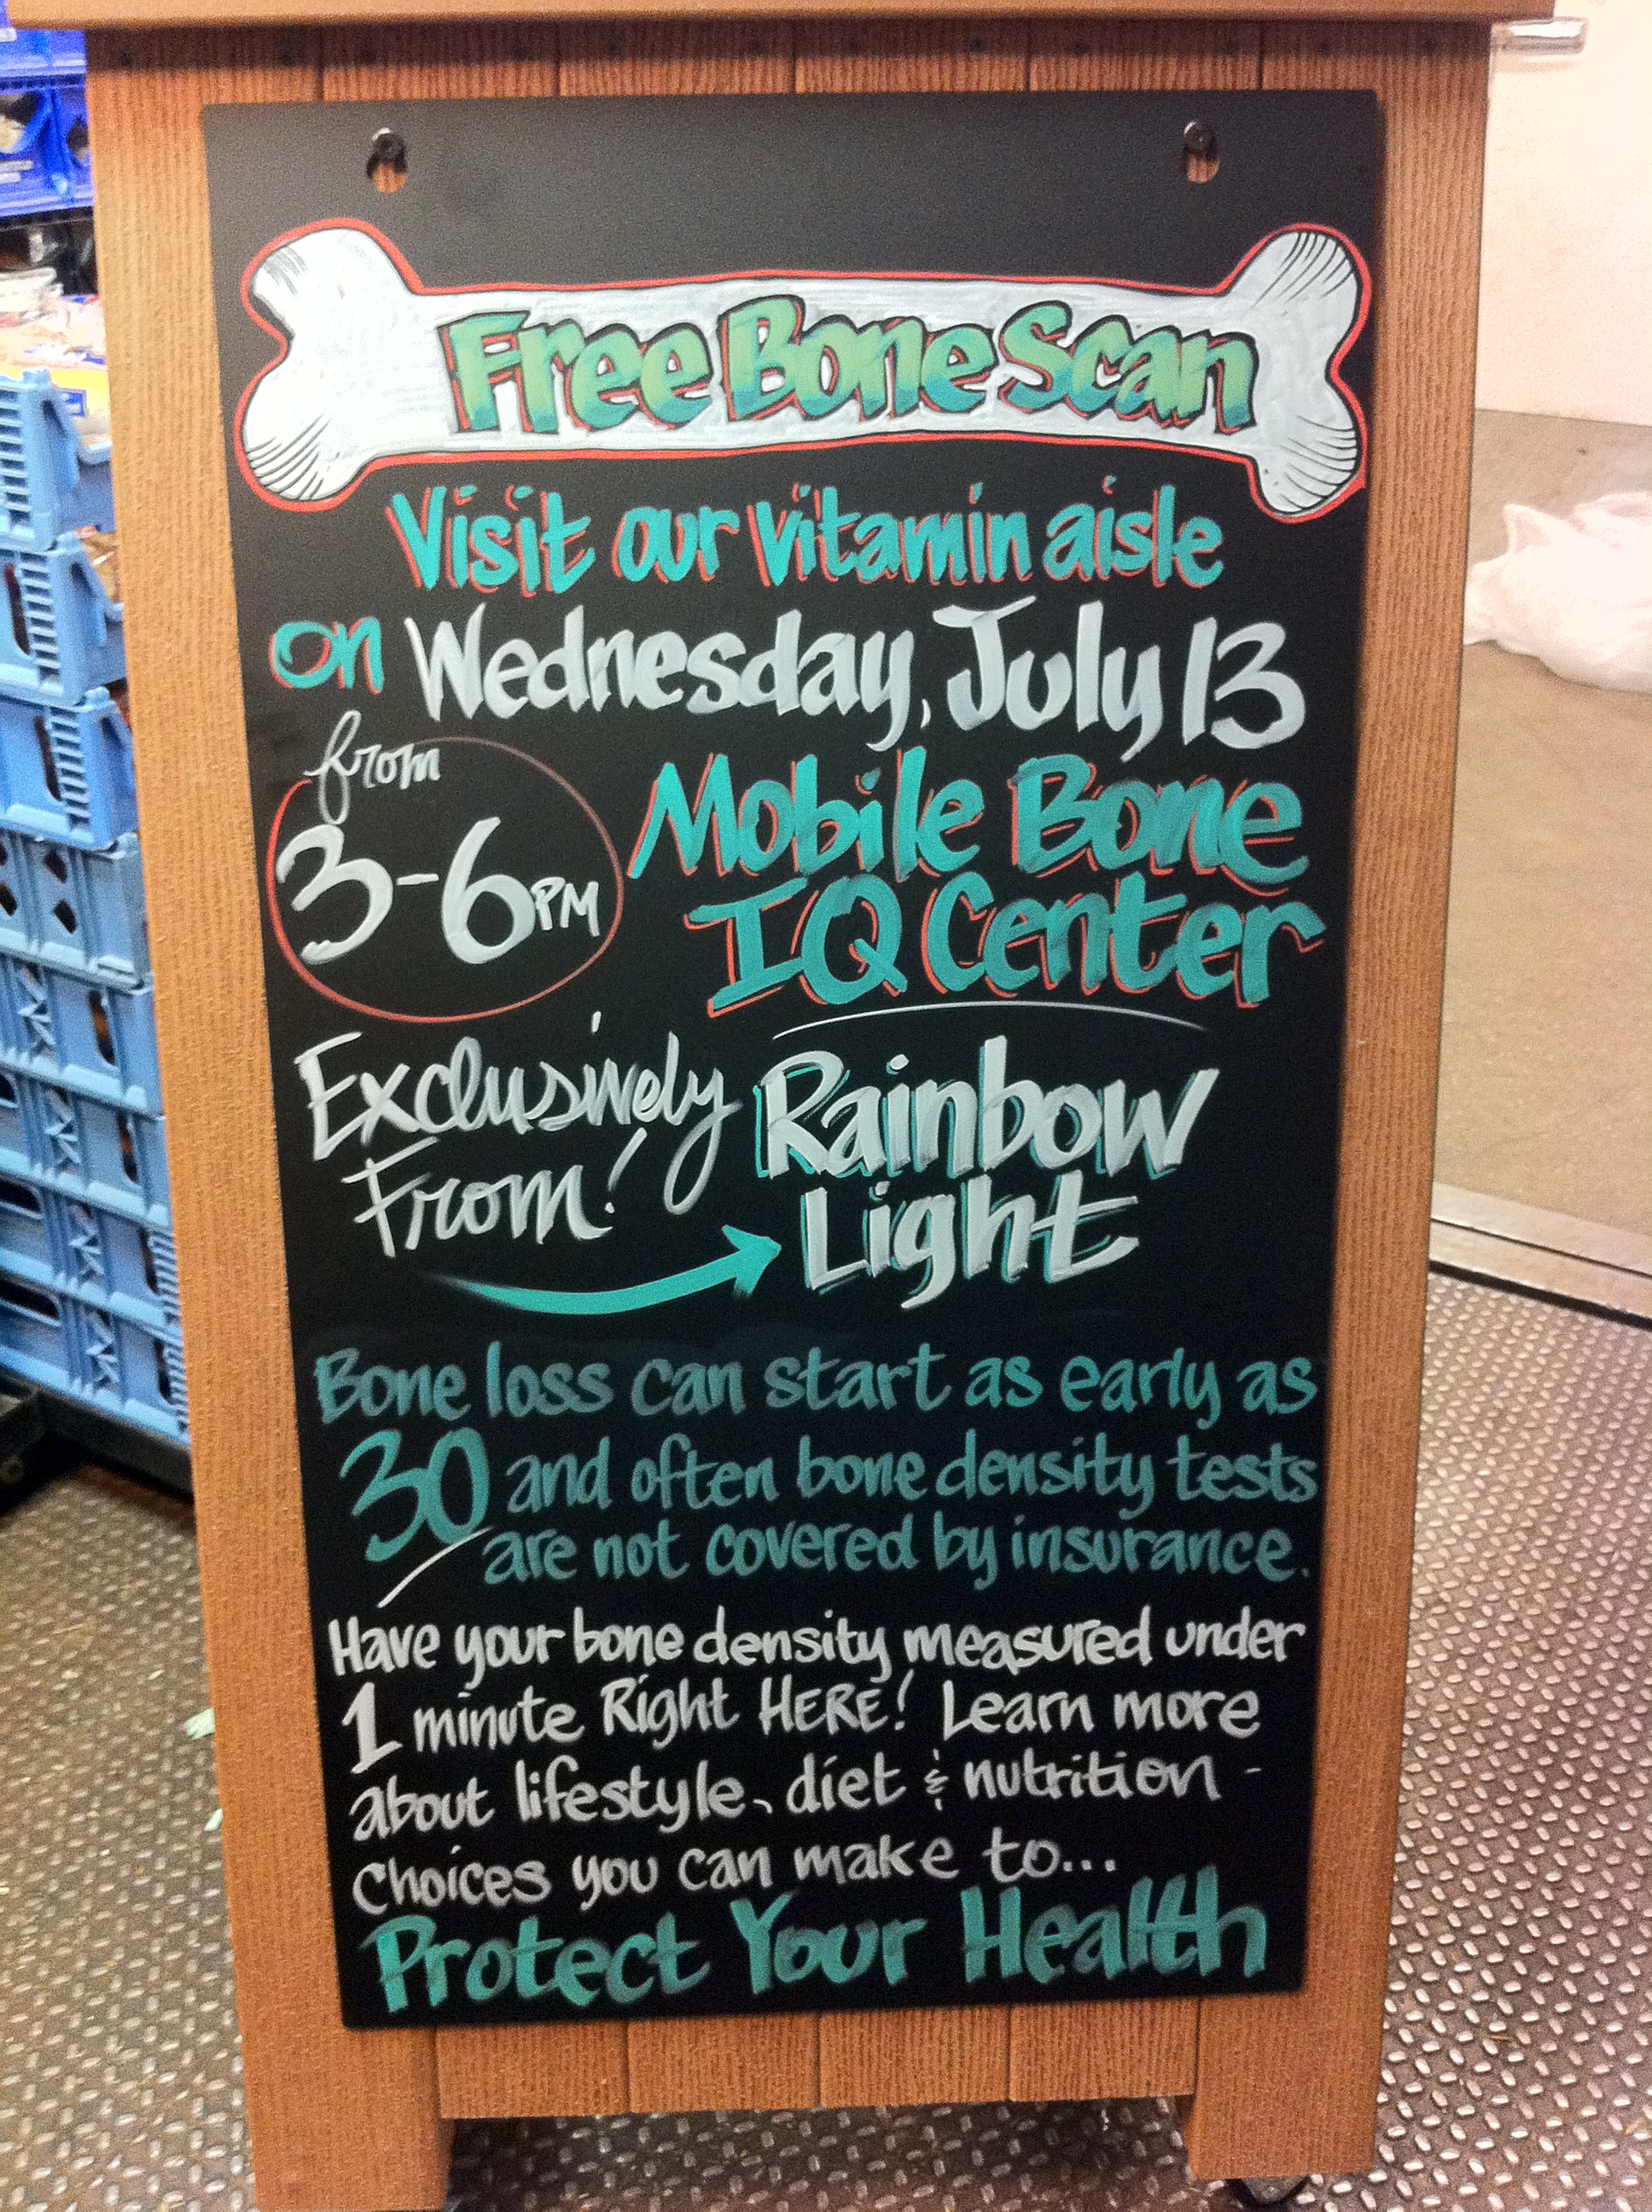 Free Bone Scan
Visit our vitamin aisle
on Wednesday, July 13
from
3-6PM
Mobile Bone
IQ Center
Exclusively
From!
Rainbow
Light
Bone loss can start as early as
30 and often bone density tests
are not covered by insurance.
Have your bone density measured under
1 minute Right HERE! Learn more
about lifestyle, diet & nutrition -
Choices you can make to...
Protect Your Health